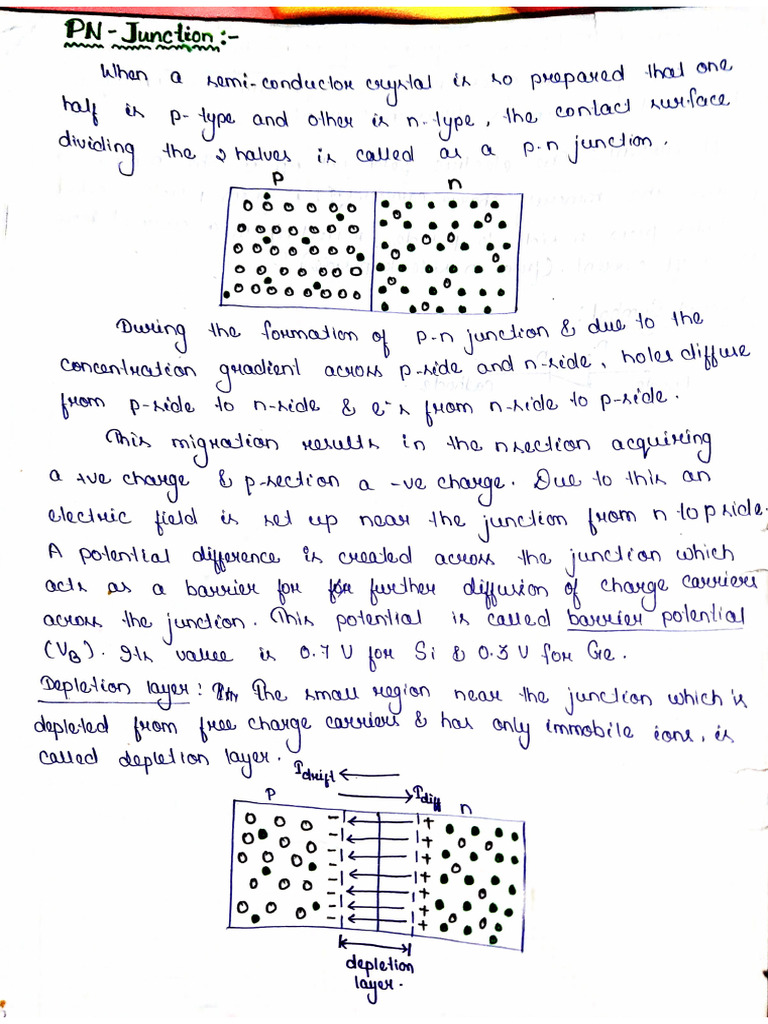 PN-Junction:-
When a semi-conductor crystal is so prepared that one
half is p-type and other is n-type, the contact surface
dividing the 2 halves is called as a p-n junction.
p n
During the formation of p-n junction & due to the
concentration gradient across p-side and n-side, holes diffuse
from p-side to n-side & e⁻s from n-side to p-side.
This migration results in the nsection acquiring
a +ve charge & p-section a -ve charge. Due to this an
electric field is set up near the junction from n to p side.
A potential difference is created across the junction which
acts as a barrier for for further diffusion of charge carriers
across the junction. This potential is called barrier potential
(VB). Its value is 0.7 V for Si & 0.3 V for Ge.
Depletion layer: The small region near the junction which is
depleted from free charge carriers & has only immobile ions, is
called depletion layer.
Idrift
Idiff
p n
- +
- +
- +
- +
- +
- +
- +
depletion
layer.